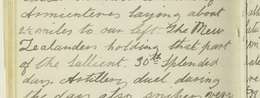 Armentieres laying about
miles to our left. The New
Zealanders holding that part
of the Sallient. 30th Splended
day. Artillery duel during
the day also